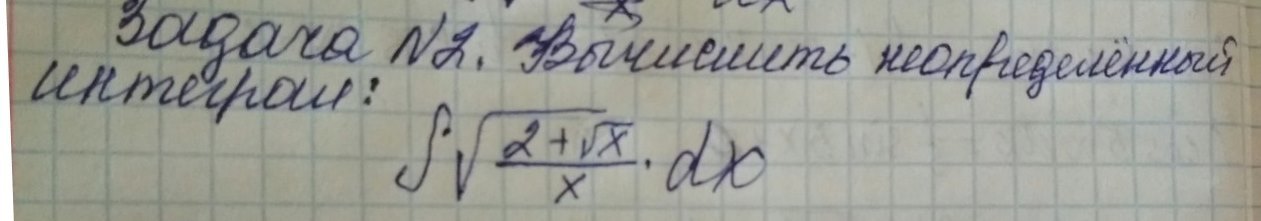 Задача №2. Вычислить неопределённый
интеграл:
∫√((2+√x)/x) · dx